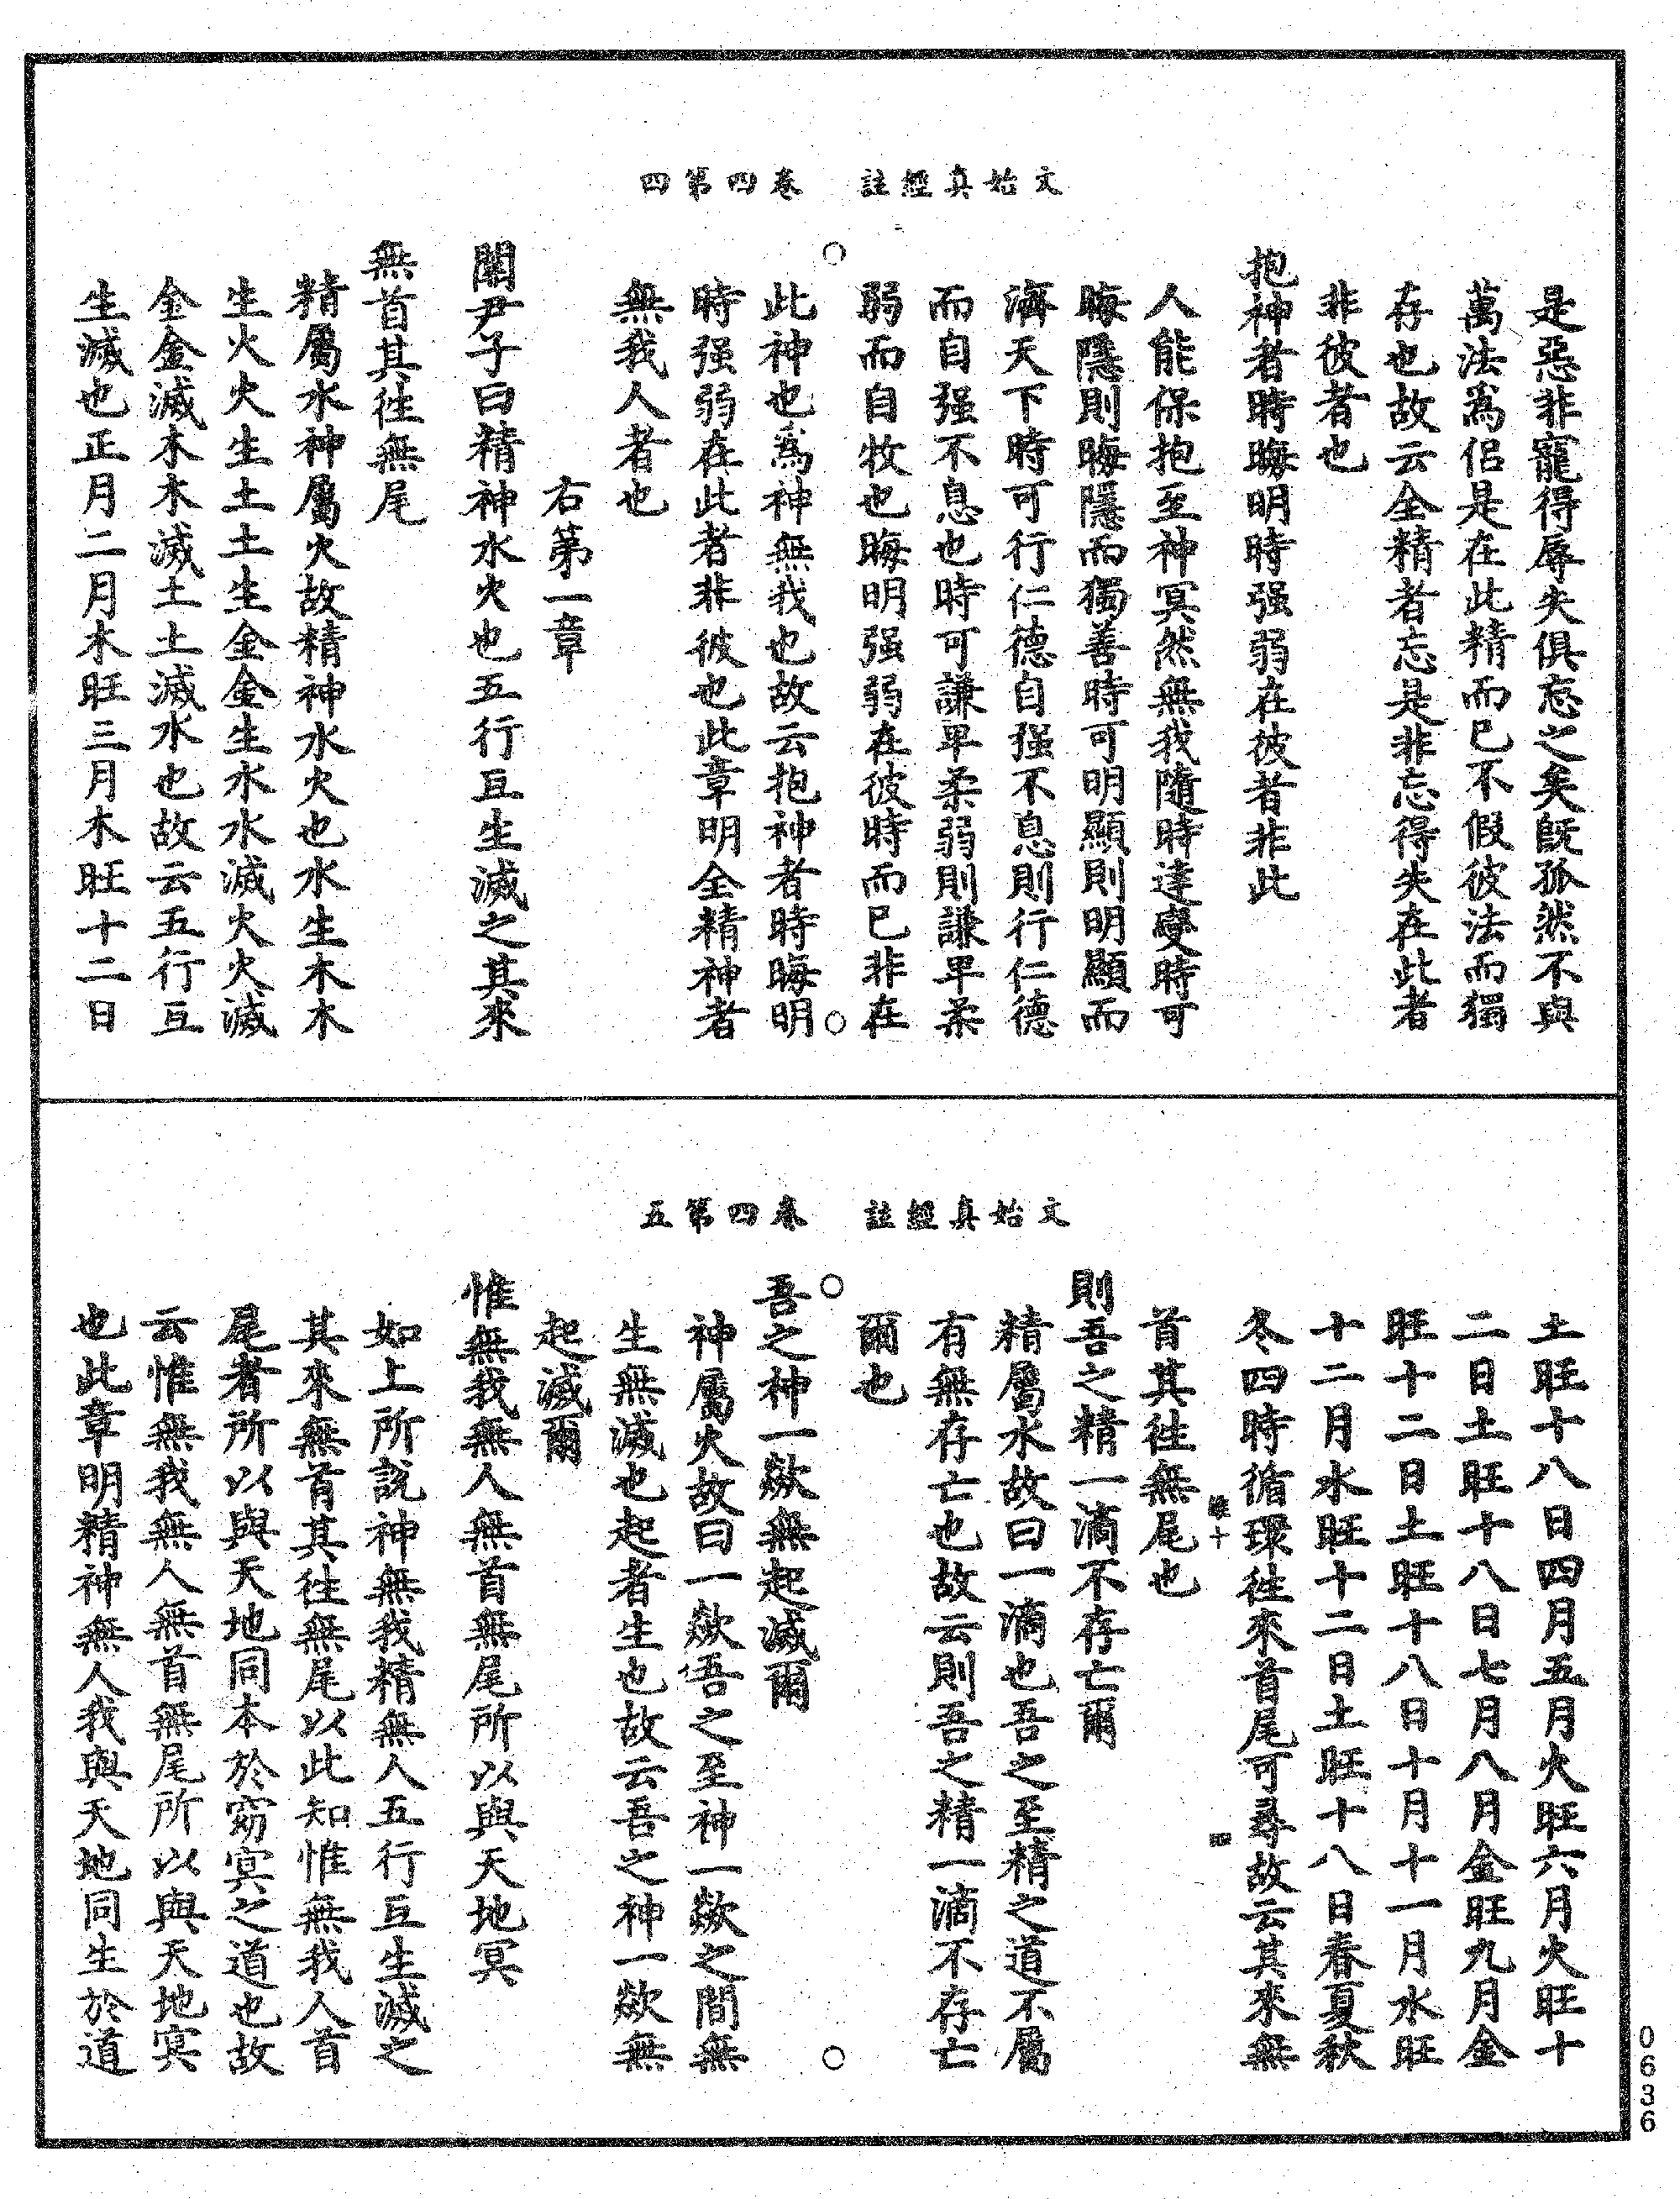 文始真經註　卷四第四
是惡非寵得辱失俱忘之矣旣孤然不與
萬法爲侶是在此精而已不假彼法而獨
存也故云全精者忘是非忘得失在此者
非彼者也
抱神者時晦明時强弱在彼者非此
人能保抱至神冥然無我隨時達變時可
晦隱則晦隱而獨善時可明顯則明顯而
濟天下時可行仁德自强不息則行仁德
而自强不息也時可謙卑柔弱則謙卑柔
弱而自牧也晦明强弱在彼時而已非在
此神也爲神無我也故云抱神者時晦明
時强弱在此者非彼也此章明全精神者
無我人者也
右第一章
關尹子曰精神水火也五行互生滅之其來
無首其往無尾
精屬水神屬火故精神水火也水生木木
生火火生土土生金金生水水滅火火滅
金金滅木木滅土土滅水也故云五行互
生滅也正月二月木旺三月木旺十二日
文始真經註　卷四第五
土旺十八日四月五月火旺六月火旺十
二日土旺十八日七月八月金旺九月金
旺十二日土旺十八日十月十一月水旺
十二月水旺十二日土旺十八日春夏秋
冬四時循環往來首尾可尋故云其來無
首其往無尾也
則吾之精一滴不存亡爾
精屬水故曰一滴也吾之至精之道不屬
有無存亡也故云則吾之精一滴不存亡
爾也
吾之神一欻無起滅爾
神屬火故曰一欻吾之至神一欻之間無
生無滅也起者生也故云吾之神一欻無
起滅爾
惟無我無人無首無尾所以與天地冥
如上所說神無我精無人五行互生滅之
其來無首其往無尾以此知惟無我人首
尾者所以與天地同本於窈冥之道也故
云惟無我無人無首無尾所以與天地冥
也此章明精神無人我與天地同生於道
0636